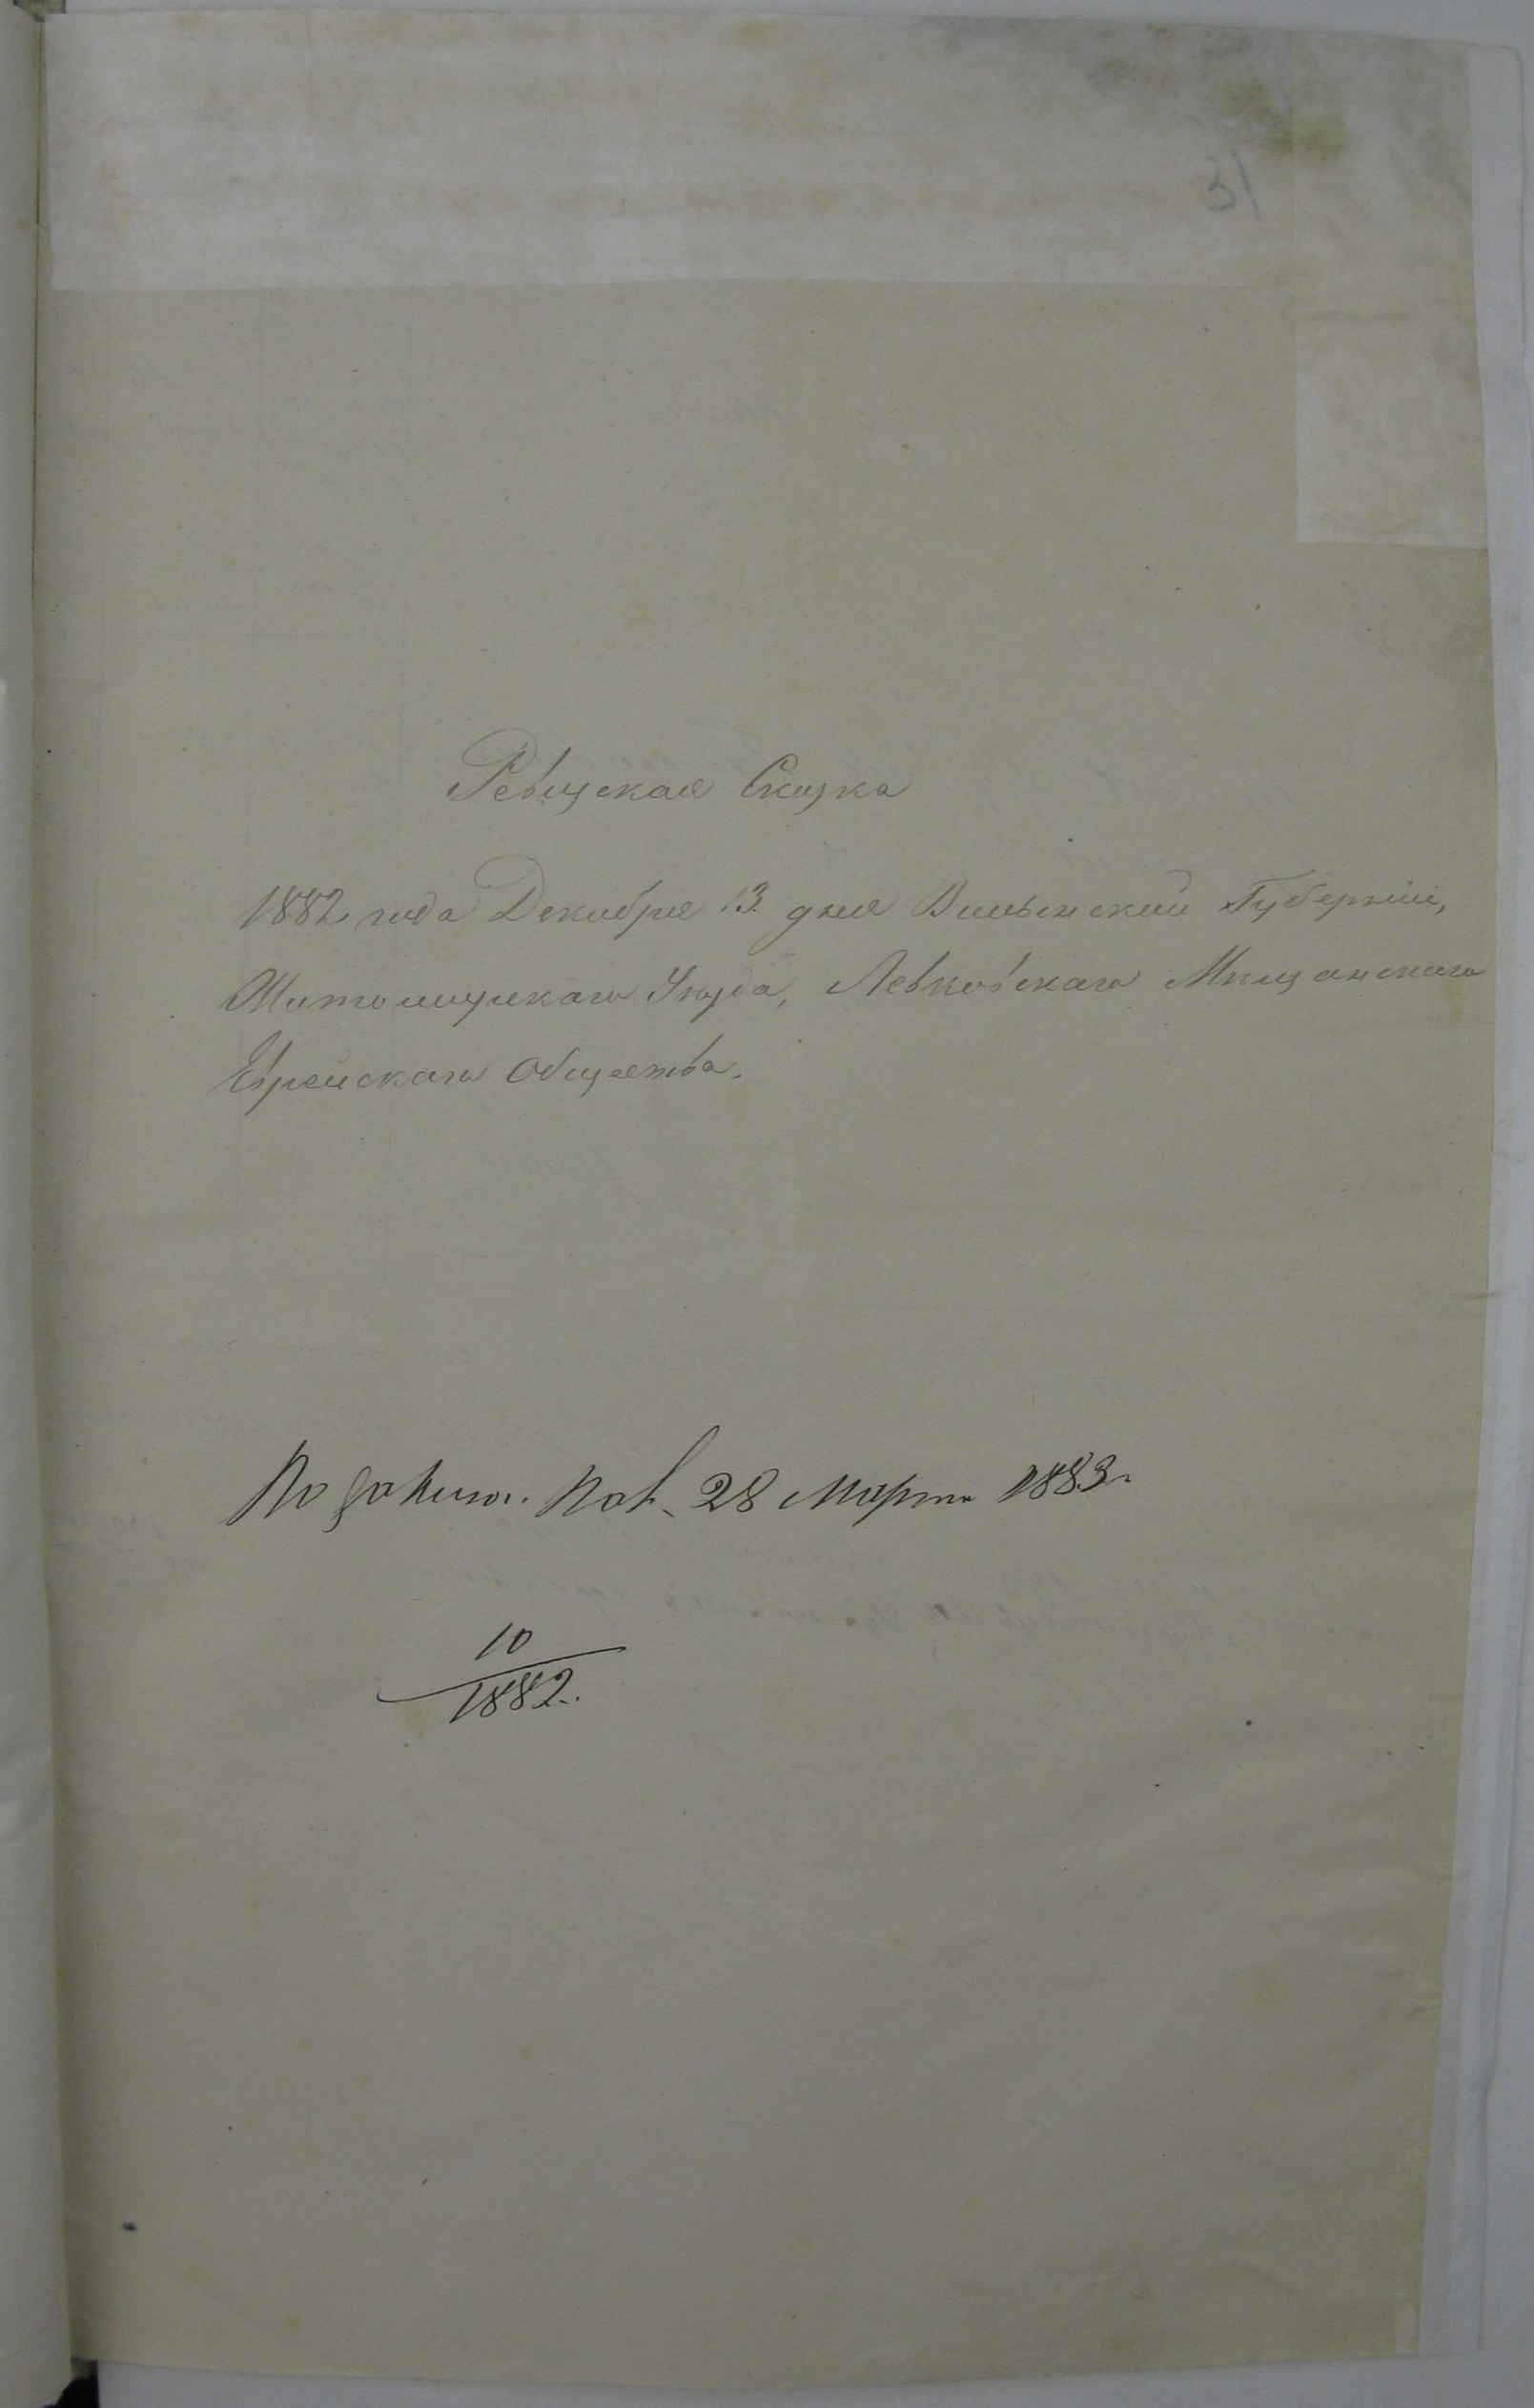 31
Ревизская Сказка
1882 года Декабря 13 дня Волынской Губернии,
Житомирскаго Уезда, Левковскаго Мещанскаго
Еврейскаго Общества.
28 Марта 1883 г.
10
1882.